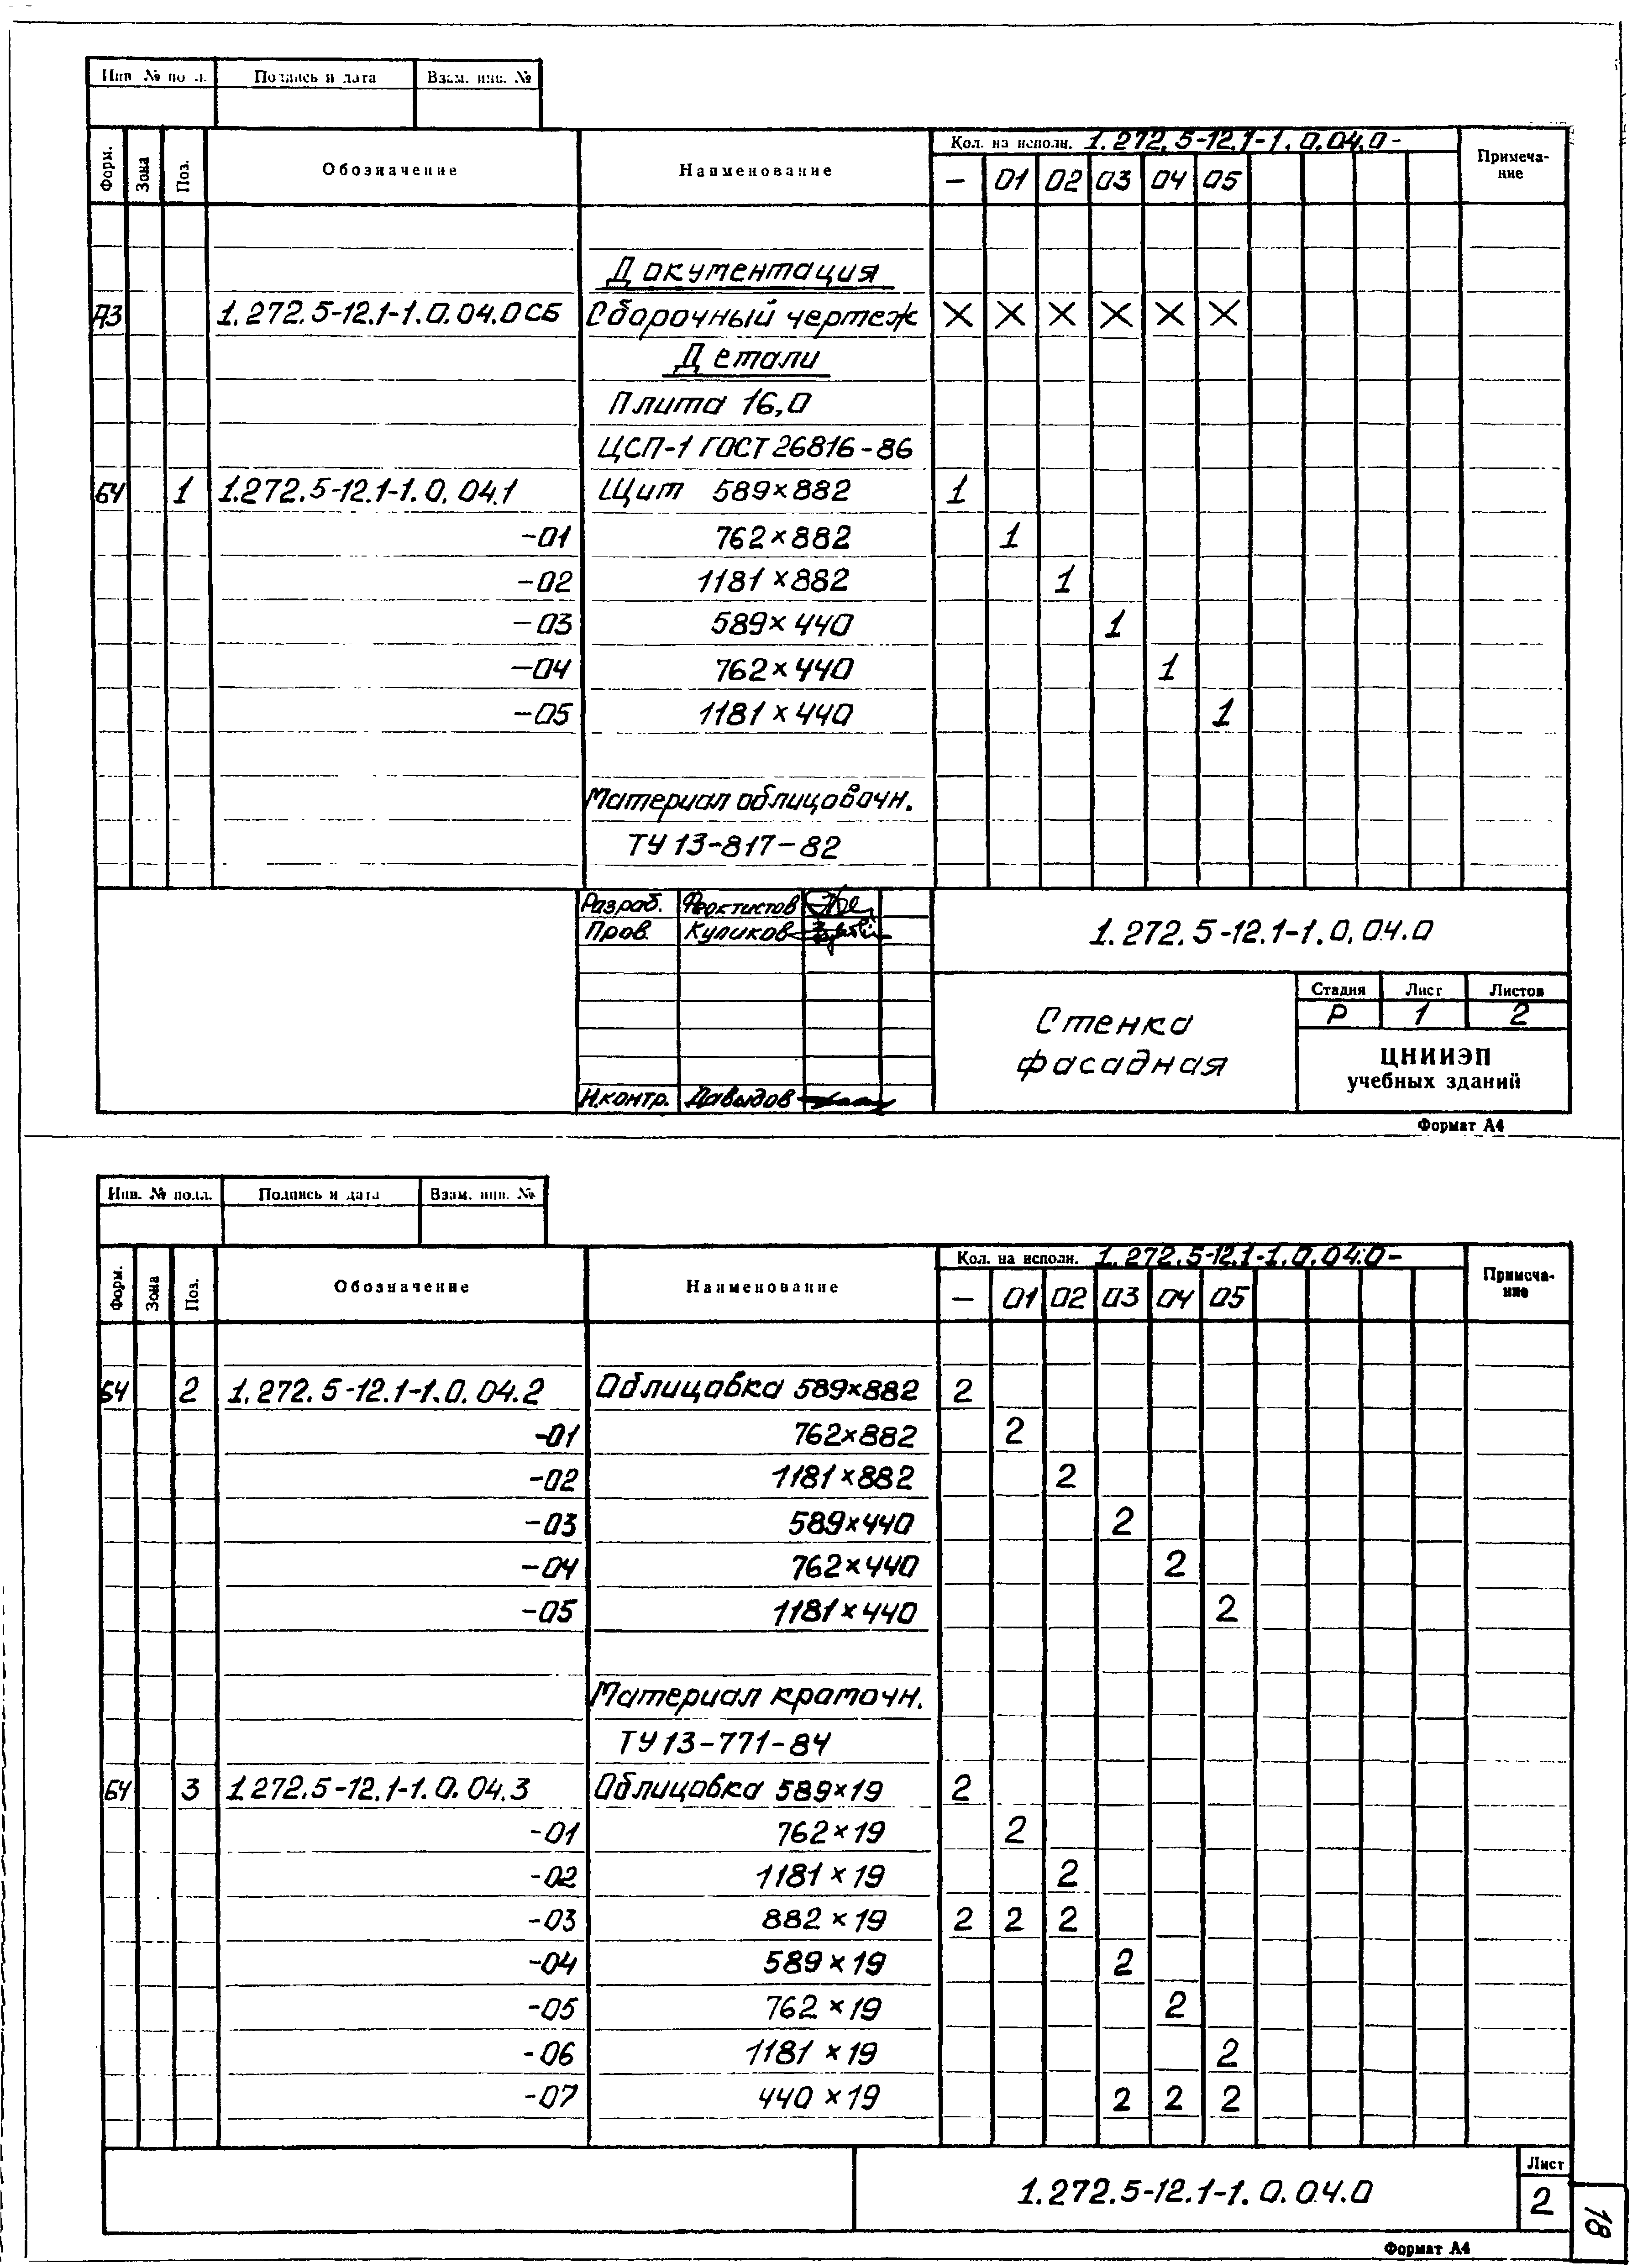 Инв. № подл. Подпись и дата Взам. инв. №
Форм. Зона Поз. Обозначение Наименование Кол. на исполн. 1.272.5-12.1-1.0.04.0- Примеча-
ние
— 01 02 03 04 05
Документация
А3 1.272.5-12.1-1.0.04.0СБ Сборочный чертеж X X X X X X
Детали
Плита 16,0
ЦСП-1 ГОСТ 26816-86
БЧ 1 1.272.5-12.1-1.0.04.1 Щит 589×882 1
-01 762×882 1
-02 1181×882 1
-03 589×440 1
-04 762×440 1
-05 1181×440 1
Материал облицовочн.
ТУ 13-817-82
Разраб. Феоктистов
Пров. Куликов
Н.контр. Давыдов
1.272.5-12.1-1.0.04.0
Стенка
фасадная
Стадия Лист Листов
Р 1 2
ЦНИИЭП
учебных зданий
Формат А4
Инв. № подл. Подпись и дата Взам. инв. №
Форм. Зона Поз. Обозначение Наименование Кол. на исполн. 1.272.5-12.1-1.0.04.0- Примеча-
ние
— 01 02 03 04 05
БЧ 2 1.272.5-12.1-1.0.04.2 Облицовка 589×882 2
-01 762×882 2
-02 1181×882 2
-03 589×440 2
-04 762×440 2
-05 1181×440 2
Материал кромочн.
ТУ 13-771-84
БЧ 3 1.272.5-12.1-1.0.04.3 Облицовка 589×19 2
-01 762×19 2
-02 1181×19 2
-03 882×19 2 2 2
-04 589×19 2
-05 762×19 2
-06 1181×19 2
-07 440×19 2 2 2
1.272.5-12.1-1.0.04.0
Лист
2
18
Формат А4